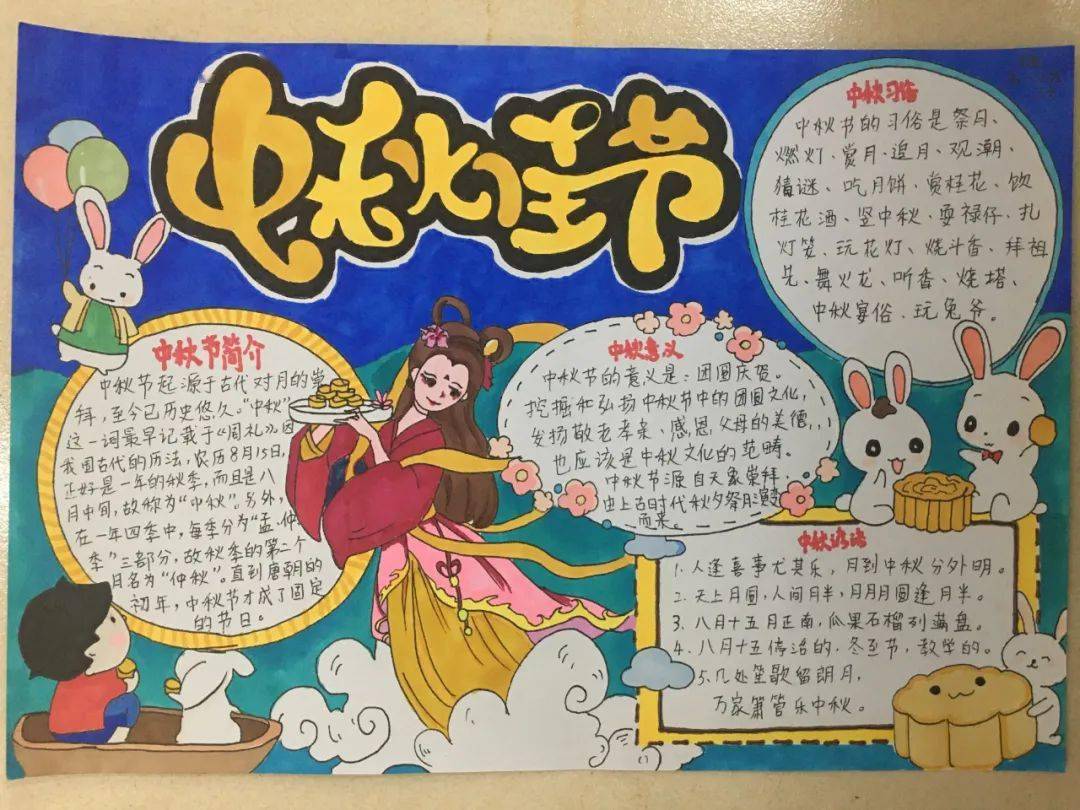 中秋佳节
中秋节简介
中秋节起源于古代对月的崇
拜，至今已历史悠久。“中秋”
这一词最早记载于《周礼》。因
我国古代的历法，农历8月15日，
正好是一年的秋季，而且是八
月中旬，故称为“中秋”。另外，
在一年四季中，每季分为“孟、仲、
季”三部分，故秋季的第二个
月名为“仲秋”。直到唐朝的
初年，中秋节才成了固定
的节日。
中秋意义
中秋节的意义是：团圆庆贺。
挖掘和弘扬中秋节中的团圆文化，
发扬敬老孝亲、感恩父母的美德，
也应该是中秋文化的范畴。
中秋节源自天象崇拜，
由上古时代秋夕祭月演变
而来。
中秋习俗
中秋节的习俗是祭月、
燃灯、赏月、追月、观潮、
猜谜、吃月饼、赏桂花、饮
桂花酒、竖中秋、耍禄仔、扎
灯笼、玩花灯、烧斗香、拜祖
先、舞火龙、听香、烧塔、
中秋宴俗、玩兔爷。
中秋
1.人逢喜事尤其乐，月到中秋分外明。
2.天上月圆，人间月半，月月月圆逢月半。
3.八月十五月正南，瓜果石榴列满盘。
4.八月十五传治的，冬至节，教学的。
5.几处笙歌留朗月，
万家箫管乐中秋。